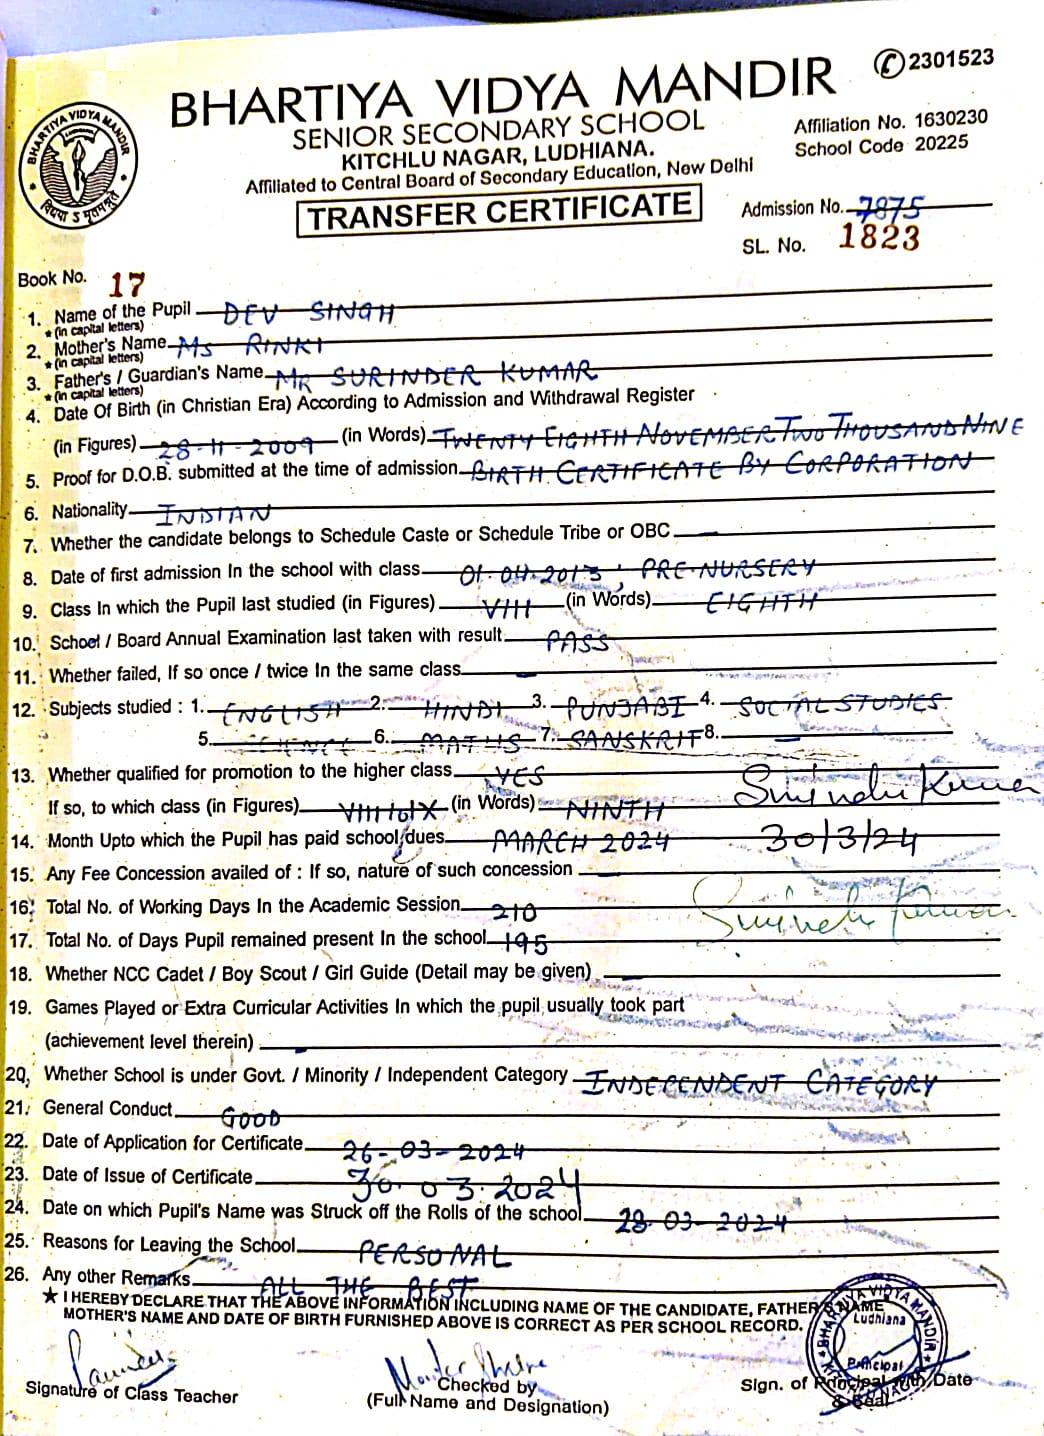 BHARTIYA VIDYA MANDIR
✆2301523
SENIOR SECONDARY SCHOOL
KITCHLU NAGAR, LUDHIANA.
Affiliated to Central Board of Secondary Education, New Delhi
Affiliation No. 1630230
School Code 20225
TRANSFER CERTIFICATE
Admission No. 7875
SL. No. 1823
BHARTIYA VIDYA MANDIR
Book No. 17
1. Name of the Pupil DEV SINGH
★(in capital letters)
2. Mother's Name MS RINKI
★(in capital letters)
3. Father's / Guardian's Name MR SURINDER KUMAR
★(in capital letters)
4. Date Of Birth (in Christian Era) According to Admission and Withdrawal Register
(in Figures) 28-11-2009 (in Words) TWENTY EIGHTH NOVEMBER TWO THOUSAND NINE
5. Proof for D.O.B. submitted at the time of admission BIRTH CERTIFICATE BY CORPORATION
6. Nationality INDIAN
7. Whether the candidate belongs to Schedule Caste or Schedule Tribe or OBC
8. Date of first admission In the school with class 01-04-2013, PRE-NURSERY
9. Class In which the Pupil last studied (in Figures) VIII (in Words) EIGHTH
10. School / Board Annual Examination last taken with result PASS
11. Whether failed, If so once / twice In the same class
12. Subjects studied : 1. ENGLISH 2. HINDI 3. PUNJABI 4. SOCIAL STUDIES
5. SCIENCE 6. MATHS 7. SANSKRIT 8.
13. Whether qualified for promotion to the higher class YES
If so, to which class (in Figures) VIII to IX (in Words) NINTH
Surinder Kumar
14. Month Upto which the Pupil has paid school dues MARCH 2024
30/3/24
15. Any Fee Concession availed of : If so, nature of such concession
16. Total No. of Working Days In the Academic Session 210
Surinder Kumar
17. Total No. of Days Pupil remained present In the school 195
18. Whether NCC Cadet / Boy Scout / Girl Guide (Detail may be given)
19. Games Played or Extra Curricular Activities In which the pupil usually took part
(achievement level therein)
20. Whether School is under Govt. / Minority / Independent Category INDEPENDENT CATEGORY
21. General Conduct GOOD
22. Date of Application for Certificate 26-03-2024
23. Date of Issue of Certificate 30.03.2024
24. Date on which Pupil's Name was Struck off the Rolls of the school 28-03-2024
25. Reasons for Leaving the School PERSONAL
26. Any other Remarks ALL THE BEST
★ I HEREBY DECLARE THAT THE ABOVE INFORMATION INCLUDING NAME OF THE CANDIDATE, FATHER'S NAME
MOTHER'S NAME AND DATE OF BIRTH FURNISHED ABOVE IS CORRECT AS PER SCHOOL RECORD.
BHARTIYA VIDYA MANDIR
Ludhiana
Principal
Signature of Class Teacher
Checked by
(Full Name and Designation)
Sign. of Principal with Date
& Seal